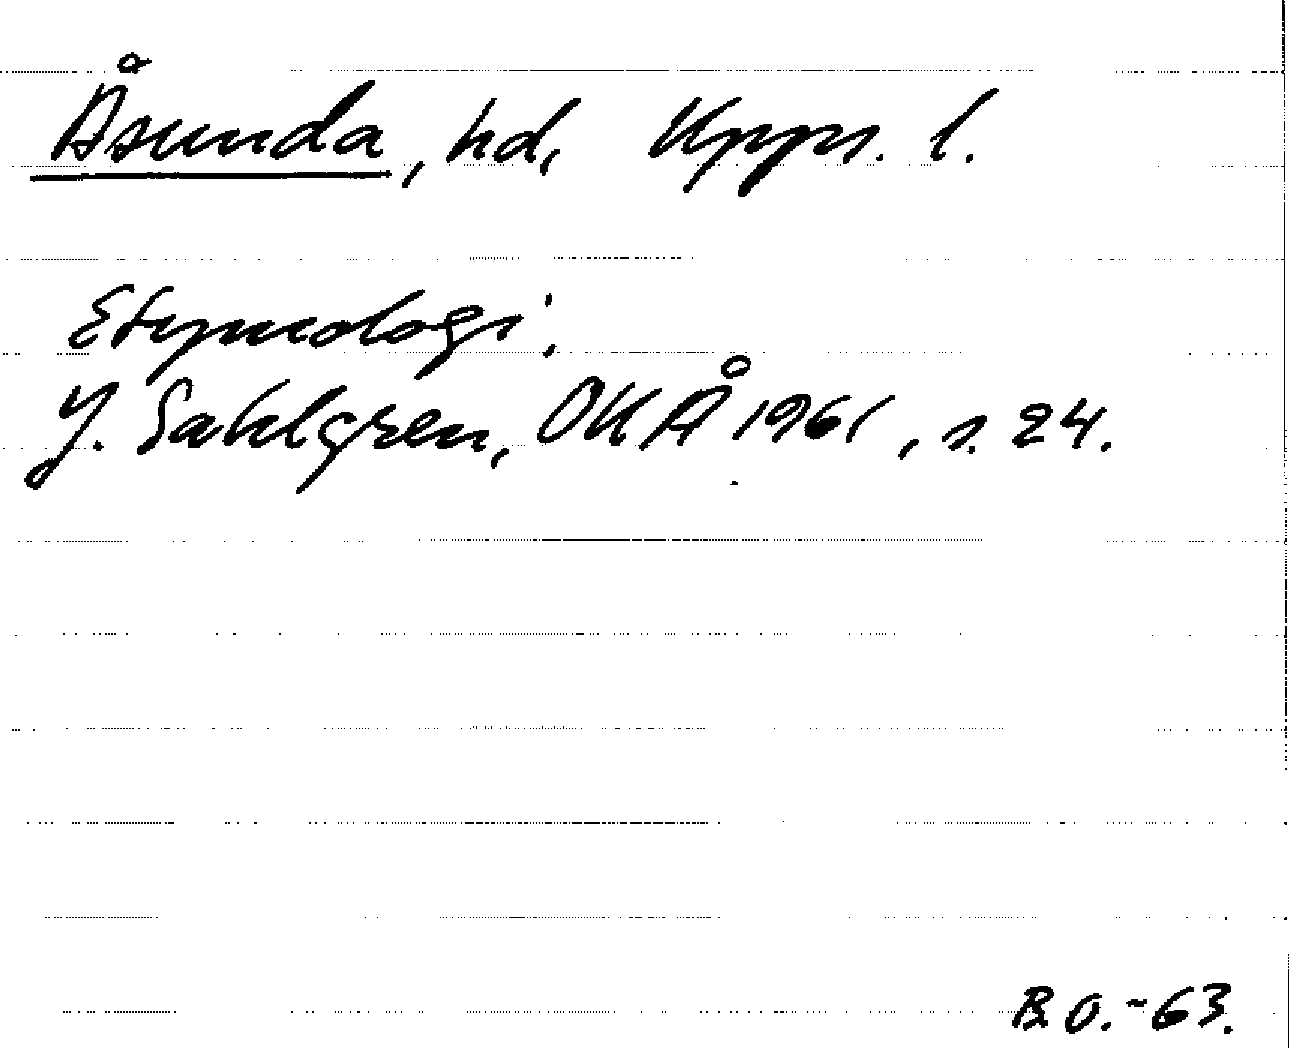 Åsunda, hd, Upps. l.
Etymologi.
J. Sahlgren, OUÅ 1961, s. 24.
B O. -63.